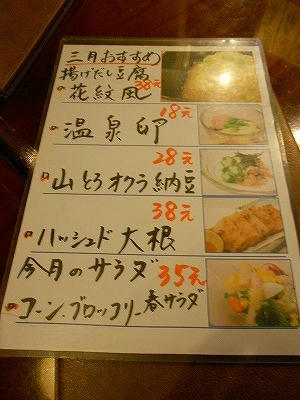 三月おすすめ
揚げだし豆腐
花紋風 38元
18元
温泉卵
28元
山とろオクラ納豆
38元
ハッシュド大根
今月のサラダ 35元
コーン.ブロッコリー春サラダ